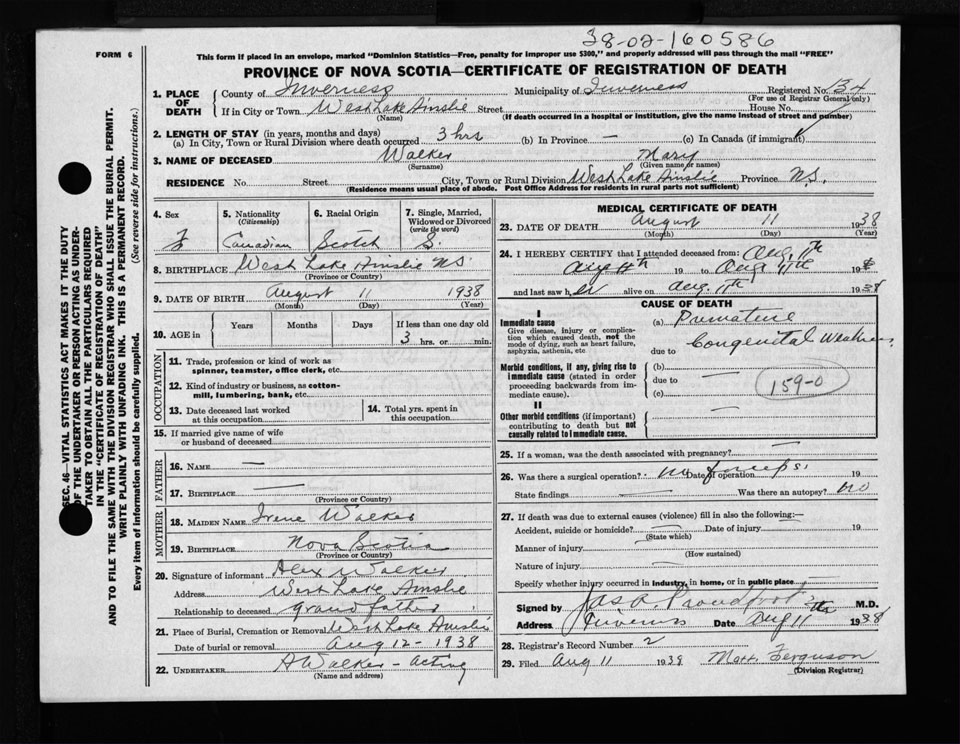 38-02-160586
FORM 6
This form if placed in an envelope, marked "Dominion Statistics—Free, penalty for improper use $300," and properly addressed will pass through the mail "FREE"
PROVINCE OF NOVA SCOTIA—CERTIFICATE OF REGISTRATION OF DEATH
1. PLACE OF DEATH
County of Inverness Municipality of Inverness Registered No.
(For use of Registrar General only)
If in City or Town West Lake Ainslie Street House No.
(Name) (If death occurred in a hospital or institution, give the name instead of street and number)
2. LENGTH OF STAY (in years, months and days)
(a) In City, Town or Rural Division where death occurred 3 hrs (b) In Province — (c) In Canada (if immigrant)
3. NAME OF DECEASED Walker Mary
(Surname) (Given name or names)
RESIDENCE No. Street City, Town or Rural Division West Lake Ainslie Province N.S.
(Residence means usual place of abode. Post Office Address for residents in rural parts not sufficient)
4. Sex
F
5. Nationality
(Citizenship)
Canadian
6. Racial Origin
Scotch
7. Single, Married, Widowed or Divorced
(write the word)
S.
8. BIRTHPLACE West Lake Ainslie N.S.
(Province or Country)
9. DATE OF BIRTH August 11 1938
(Month) (Day) (Year)
10. AGE in Years Months Days If less than one day old
3 hrs. or min.
OCCUPATION
11. Trade, profession or kind of work as
spinner, teamster, office clerk, etc.
12. Kind of industry or business, as cotton-
mill, lumbering, bank, etc.
13. Date deceased last worked
at this occupation
14. Total yrs. spent in
this occupation
15. If married give name of wife
or husband of deceased
FATHER
16. NAME —
17. BIRTHPLACE —
(Province or Country)
MOTHER
18. MAIDEN NAME Irene Walker
19. BIRTHPLACE Nova Scotia
(Province or Country)
20. Signature of informant Alex Walker
Address West Lake Ainslie
Relationship to deceased grandfather
21. Place of Burial, Cremation or Removal West Lake Ainslie
Date of burial or removal Aug 12 - 1938
22. UNDERTAKER A Walker - acting
(Name and address)
MEDICAL CERTIFICATE OF DEATH
23. DATE OF DEATH August 11 1938
(Month) (Day) (Year)
24. I HEREBY CERTIFY that I attended deceased from: Aug. 11th
19 to Aug 11th 19
and last saw her alive on Aug. 11th 1938
CAUSE OF DEATH
I
Immediate cause
Give disease, injury or complica-
tion which caused death, not the
mode of dying, such as heart failure,
asphyxia, asthenia, etc
(a) Premature
Congenital
due to
Morbid conditions, if any, giving rise to
immediate cause (stated in order
proceeding backwards from im-
mediate cause).
(b) —
due to —
(c)
159-0
II
Other morbid conditions (if important)
contributing to death but not
causally related to immediate cause.
25. If a woman, was the death associated with pregnancy? —
26. Was there a surgical operation? no forceps. Date of operation 19
State findings — Was there an autopsy? no
27. If death was due to external causes (violence) fill in also the following:—
Accident, suicide or homicide? — Date of injury 19
(State which)
Manner of injury —
(How sustained)
Nature of injury —
Specify whether injury occurred in industry, in home, or in public place —
Signed by Jas. R. Proudfoot M.D.
Address Inverness Date Aug 11 1938
28. Registrar's Record Number 2
29. Filed Aug 11 1938 Ferguson
(Division Registrar)
SEC. 46—VITAL STATISTICS ACT MAKES IT THE DUTY
OF THE UNDERTAKER OR PERSON ACTING AS UNDER-
TAKER TO OBTAIN ALL THE PARTICULARS REQUIRED
IN THE "CERTIFICATE OF REGISTRATION OF DEATH"
AND TO FILE THE SAME WITH THE DIVISION REGISTRAR WHO SHALL ISSUE THE BURIAL PERMIT.
WRITE PLAINLY WITH UNFADING INK. THIS IS A PERMANENT RECORD.
Every item of information should be carefully supplied. (See reverse side for instructions.)